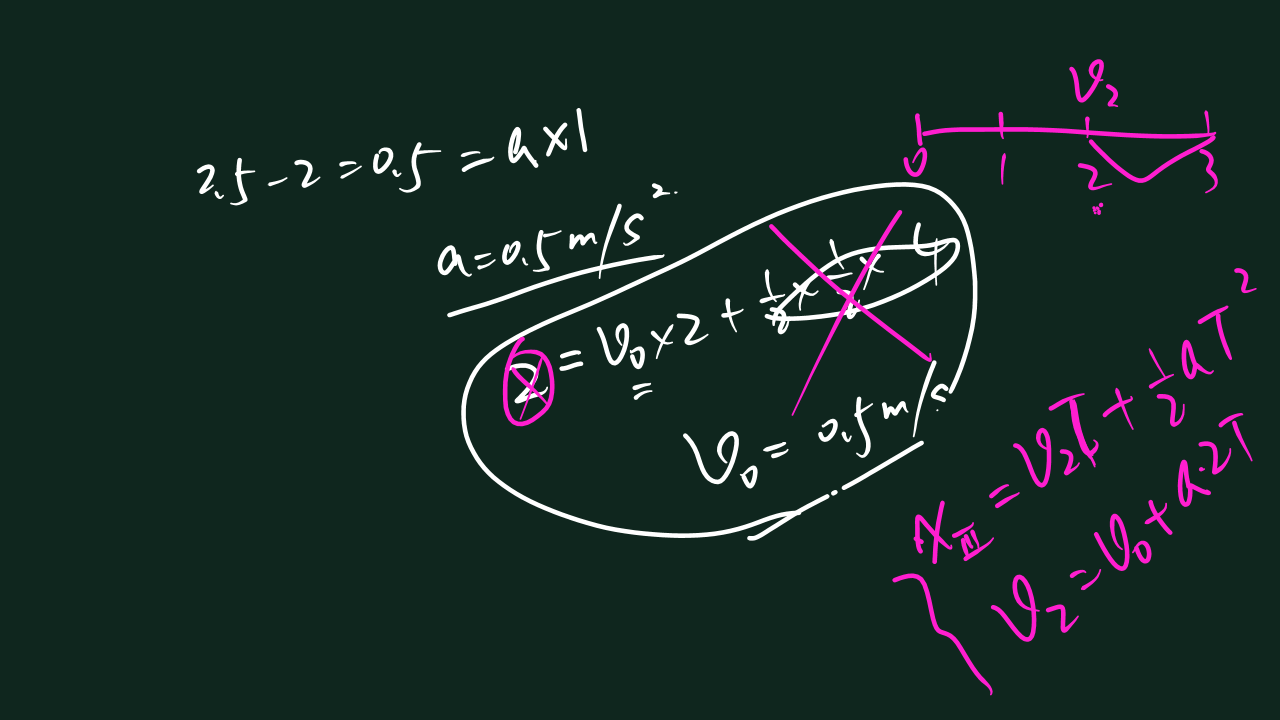 2.5-2=0.5=a×1
a=0.5m/s².
2=v₀×2+½×½×4
v₀=0.5m/s.
v₂
0 1 2 3
x_Ⅲ=v₂T+½aT²
v₂=v₀+a·2T